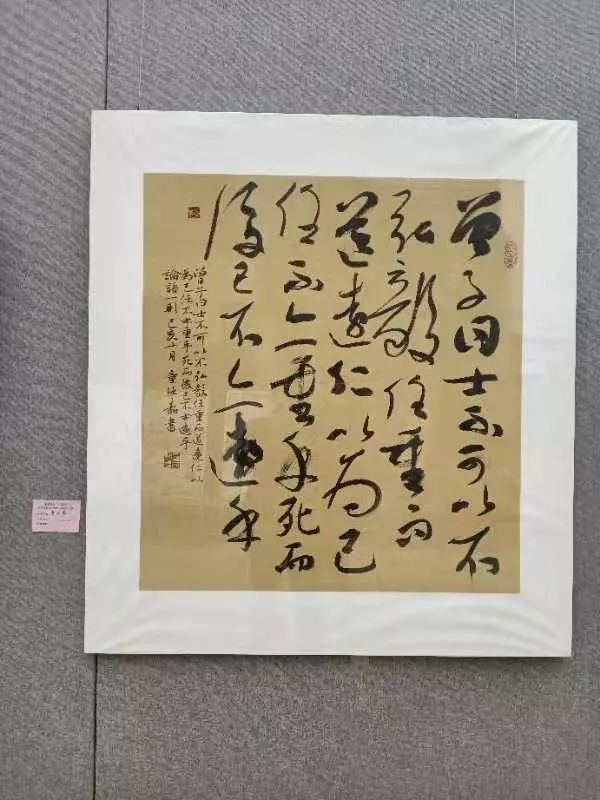 曾子曰士不可以不
弘毅任重而
道遠仁以為己
任不亦重乎死而
後已不亦遠乎
曾子曰士不可以不弘毅任重而道遠仁以
為己任不亦重乎死而後已不亦遠乎
論語一則己亥十月
書